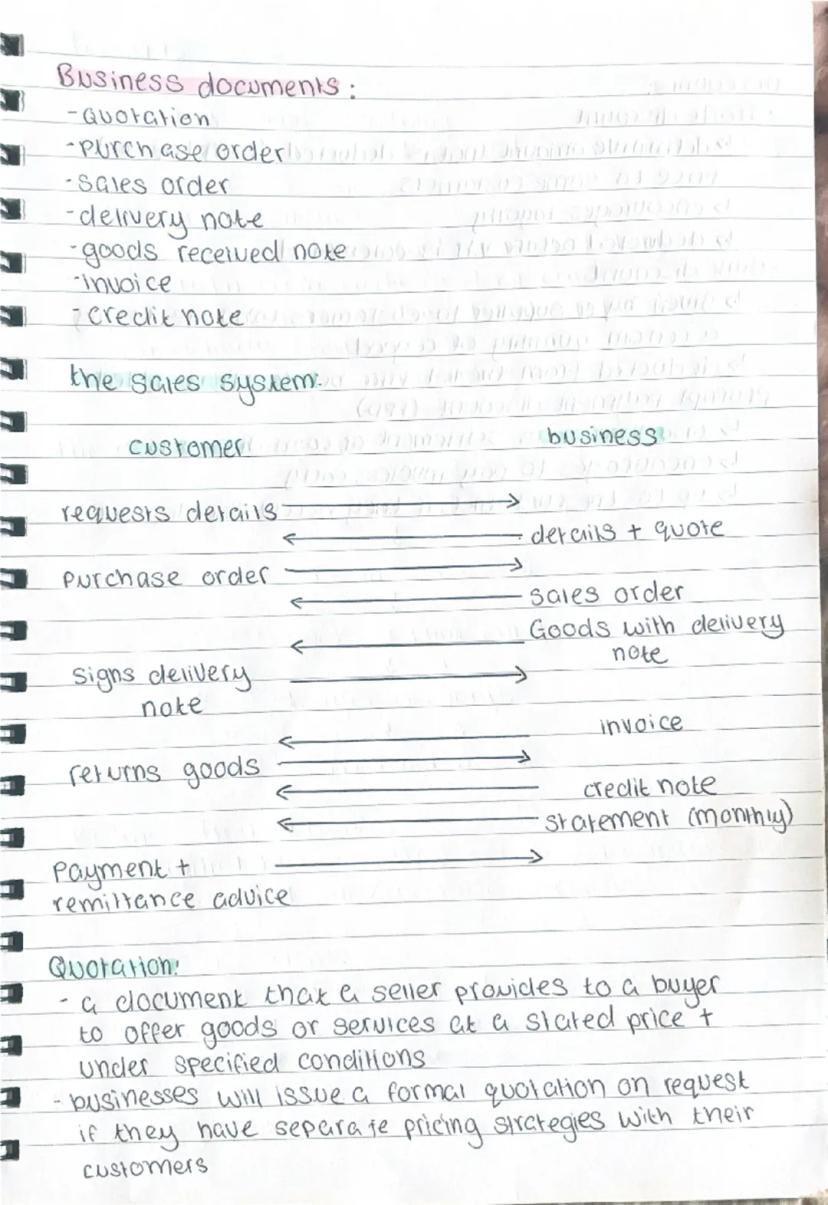 Business documents:
- Quotation
- purchase order
- sales order
- delivery note
- goods received note
- invoice
- credit note
the sales system:
customer business
requests details
details + quote
purchase order
sales order
Goods with delivery
note
signs delivery
note
invoice
returns goods
credit note
statement (monthly)
payment +
remittance advice
Quotation:
- a document that a seller provides to a buyer
to offer goods or services at a stated price +
under specified conditions
- businesses will issue a formal quotation on request
if they have separate pricing strategies with their
customers